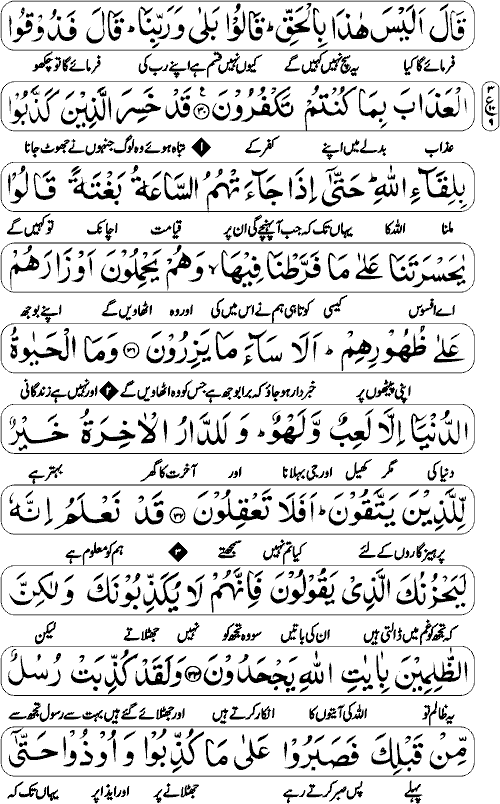 قَالَ اَلَيْسَ هٰذَا بِالْحَقِّ ؕ قَالُوْا بَلٰى وَرَبِّنَا ؕ قَالَ فَذُوْقُوا
فرمائے گا کیا یہ سچ نہیں کہیں گے کیوں نہیں قسم ہے اپنے رب کی فرمائے گا تو چکھو
الْعَذَابَ بِمَا كُنْتُمْ تَكْفُرُوْنَ ۝۳۰ قَدْ خَسِرَ الَّذِيْنَ كَذَّبُوْا
عذاب بدلے میں اپنے کفر کے ۱ تباہ ہوئے وہ لوگ جنہوں نے جھوٹ جانا
بِلِقَآءِ اللّٰهِ ؕ حَتّٰۤى اِذَا جَآءَتْهُمُ السَّاعَةُ بَغْتَةً قَالُوْا
ملنا اللہ کا یہاں تک کہ جب آ پہنچے گی ان پر قیامت اچانک تو کہیں گے
يٰحَسْرَتَنَا عَلٰى مَا فَرَّطْنَا فِيْهَا ۙ وَهُمْ يَحْمِلُوْنَ اَوْزَارَهُمْ
اے افسوس کیسی کوتاہی ہم نے اس میں کی اور وہ اٹھاویں گے اپنے بوجھ
عَلٰى ظُهُوْرِهِمْ ؕ اَلَا سَآءَ مَا يَزِرُوْنَ ۝۳۱ وَمَا الْحَيٰوةُ
اپنی پیٹھوں پر خبردار ہو جاؤ کہ برا بوجھ ہے جس کو وہ اٹھاویں گے ۲ اور نہیں ہے زندگانی
الدُّنْيَاۤ اِلَّا لَعِبٌ وَّلَهْوٌ ؕ وَلَلدَّارُ الْاٰخِرَةُ خَيْرٌ
دنیا کی مگر کھیل اور جی بہلانا اور آخرت کا گھر بہتر ہے
لِّلَّذِيْنَ يَتَّقُوْنَ ؕ اَفَلَا تَعْقِلُوْنَ ۝۳۲ قَدْ نَعْلَمُ اِنَّهٗ
پرہیزگاروں کے لئے کیا تم نہیں سمجھتے ۳ ہم کو معلوم ہے
لَيَحْزُنُكَ الَّذِيْ يَقُوْلُوْنَ فَاِنَّهُمْ لَا يُكَذِّبُوْنَكَ وَلٰكِنَّ
کہ تجھ کو غم میں ڈالتی ہیں ان کی باتیں سو وہ تجھ کو نہیں جھٹلاتے لیکن
الظّٰلِمِيْنَ بِاٰيٰتِ اللّٰهِ يَجْحَدُوْنَ ۝۳۳ وَلَقَدْ كُذِّبَتْ رُسُلٌ
یہ ظالم تو اللہ کی آیتوں کا انکار کرتے ہیں اور جھٹلائے گئے ہیں بہت سے رسول تجھ سے
مِّنْ قَبْلِكَ فَصَبَرُوْا عَلٰى مَا كُذِّبُوْا وَاُوْذُوْا حَتّٰۤى
پہلے پس صبر کرتے رہے جھٹلانے پر اور ایذا پر یہاں تک کہ